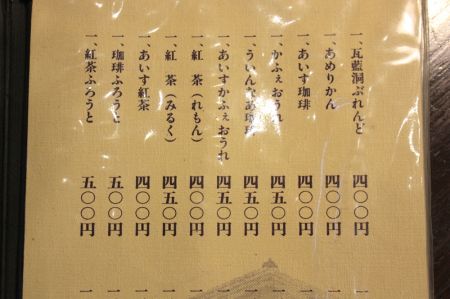 一、瓦藍洞ぶれんど 四〇〇円
一、あめりかん 四〇〇円
一、あいす珈琲 四〇〇円
一、かふぇおうれ 四五〇円
一、ういんなあ珈琲 四五〇円
一、あいすかふぇおうれ 四五〇円
一、紅 茶(れもん) 四〇〇円
一、紅 茶(みるく) 四五〇円
一、あいす紅茶 四〇〇円
一、珈琲ふろうと 五〇〇円
一、紅茶ふろうと 五〇〇円